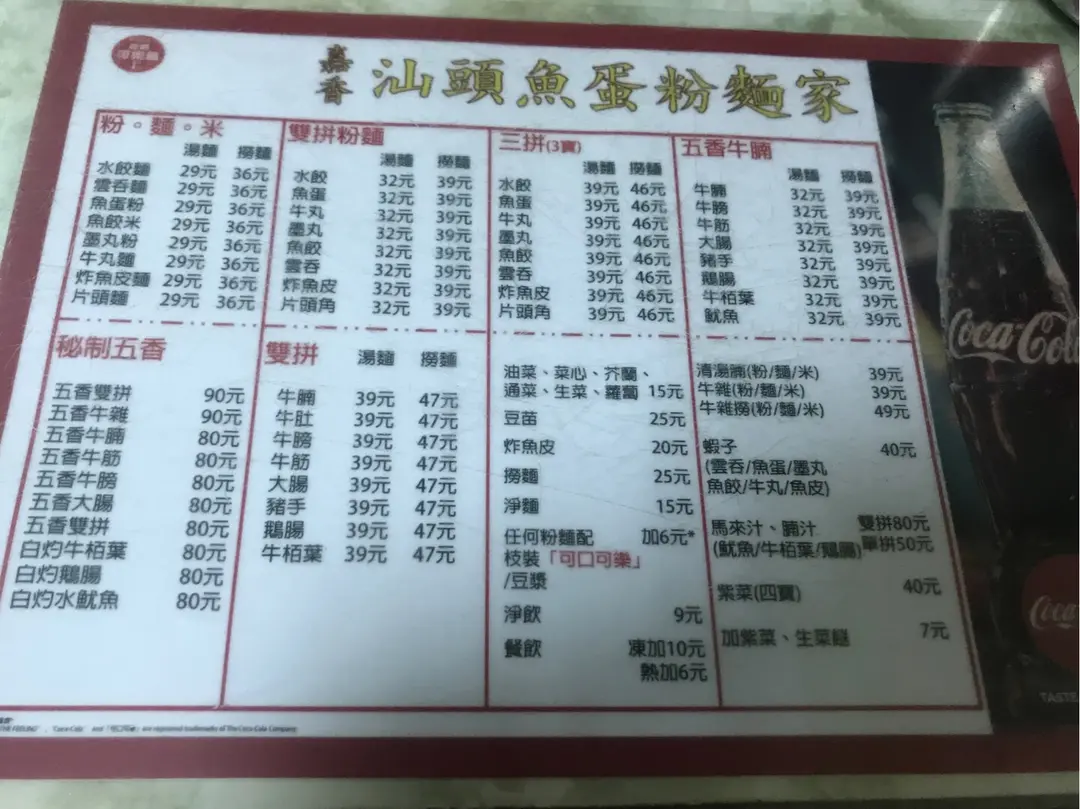 嘉香 汕頭魚蛋粉麵家
粉。麵。米
湯麵 撈麵
水餃麵 29元 36元
雲吞麵 29元 36元
魚蛋粉 29元 36元
魚餃米 29元 36元
墨丸粉 29元 36元
牛丸麵 29元 36元
炸魚皮麵 29元 36元
片頭麵 29元 36元
雙拼粉麵
湯麵 撈麵
水餃 32元 39元
魚蛋 32元 39元
牛丸 32元 39元
墨丸 32元 39元
魚餃 32元 39元
雲吞 32元 39元
炸魚皮 32元 39元
片頭角 32元 39元
三拼(3寶)
湯麵 撈麵
水餃 39元 46元
魚蛋 39元 46元
牛丸 39元 46元
墨丸 39元 46元
魚餃 39元 46元
雲吞 39元 46元
炸魚皮 39元 46元
片頭角 39元 46元
五香牛腩
湯麵 撈麵
牛腩 32元 39元
牛膀 32元 39元
牛筋 32元 39元
大腸 32元 39元
豬手 32元 39元
鵝腸 32元 39元
牛栢葉 32元 39元
魷魚 32元 39元
秘制五香
五香雙拼 90元
五香牛雜 90元
五香牛腩 80元
五香牛筋 80元
五香牛膀 80元
五香大腸 80元
五香雙拼 80元
白灼牛栢葉 80元
白灼鵝腸 80元
白灼水魷魚 80元
雙拼 湯麵 撈麵
牛腩 39元 47元
牛肚 39元 47元
牛膀 39元 47元
牛筋 39元 47元
大腸 39元 47元
豬手 39元 47元
鵝腸 39元 47元
牛栢葉 39元 47元
油菜、菜心、芥蘭、
通菜、生菜、蘿蔔 15元
豆苗 25元
炸魚皮 20元
撈麵 25元
淨麵 15元
任何粉麵配 加6元*
枝裝「可口可樂」
/豆漿
淨飲 9元
餐飲 凍加10元
熱加6元
清湯腩(粉/麵/米) 39元
牛雜(粉/麵/米) 39元
牛雜撈(粉/麵/米) 49元
蝦子 40元
(雲吞/魚蛋/墨丸
魚餃/牛丸/魚皮)
馬來汁、腩汁 雙拼80元
(魷魚/牛栢葉/鵝腸) 單拼50元
紫菜(四寶) 40元
加紫菜、生菜餸 7元
Coca-Col
Coca
TASTE
"Coca-Cola" and are registered trademarks of The Coca-Cola Company